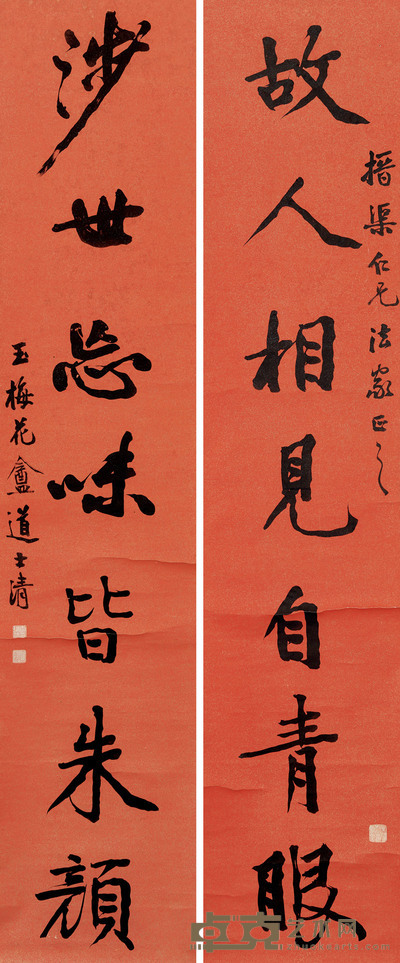 搢渠仁兄法家正之
故人相見自青眼
涉世忘味皆朱顔
玉梅花盦道士清
卓克艺术网